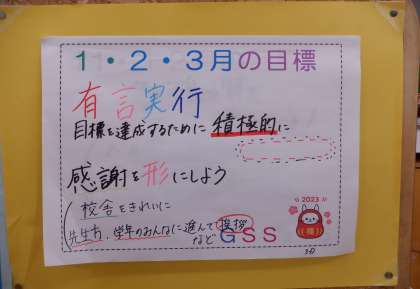 1・2・3月の目標
有言実行
目標を達成するために 積極的に
感謝を形にしよう
(校舎をきれいに
先生方、学年のみんなに進んで挨拶
など GSS
2023